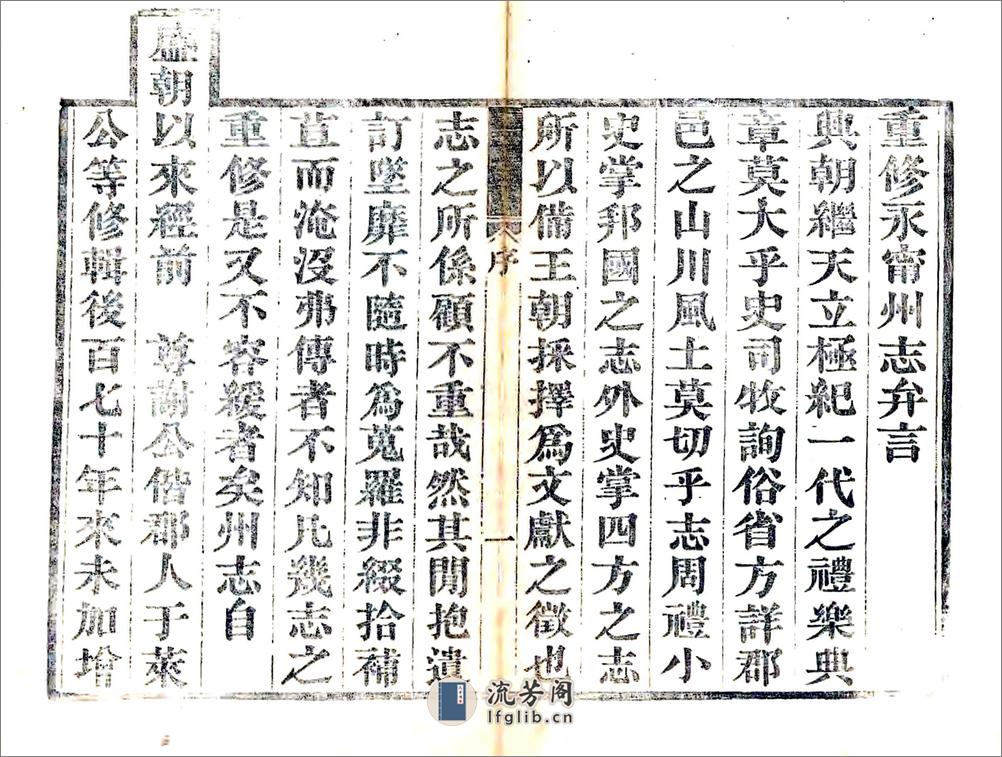 重修永甯州志弁言
興朝繼天立極紀一代之禮樂典
章莫大乎史司牧詢俗省方詳郡
邑之山川風土莫切乎志周禮小
史掌邦國之志外史掌四方之志
所以備王朝採擇爲文獻之徵也
序
一
志之所係顧不重哉然其閒抱遺
訂墜靡不隨時爲蒐羅非綴拾補
苴而淹沒弗傳者不知凡幾志之
重修是又不容緩者矣州志自
盛朝以來經前 尊謝公偕郡人于萊
公等修輯後百七十年來未加增
流芳阁
lfglib.cn